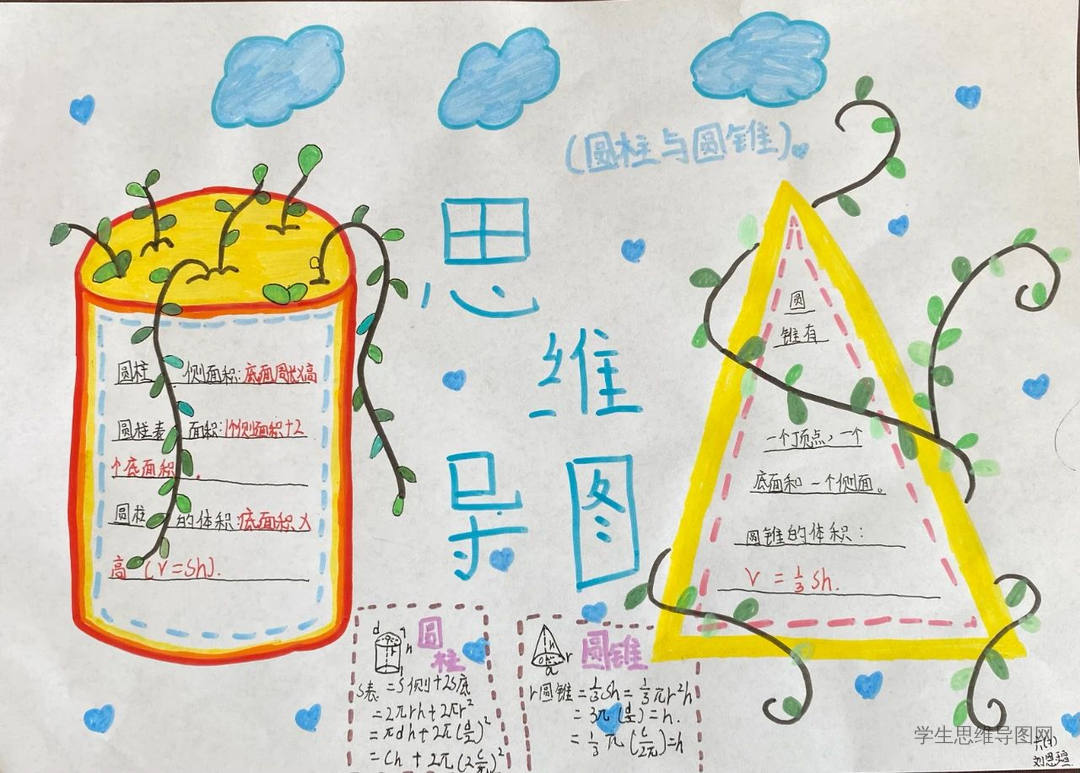 (圆柱与圆锥)
思
维
导图
圆柱 侧面积:底面周长×高
圆柱表 面积:1个侧面积+2
个底面积.
圆柱 的体积:底面积×
高 (V=Sh).
圆
锥有
一个顶点,一个
底面和一个侧面。
圆锥的体积:
V = 1/3 Sh.
圆
柱
d
h
S表 =S侧+2S底
=2πrh+2πr²
=πdh+2π(d/2)²
=Ch+2π(2c/π)²
圆锥
h
r
r圆锥=1/3Sh=1/3πr²h
=3π(d/2)=h.
=1/3π(C/2π)=h
学生思维导图网